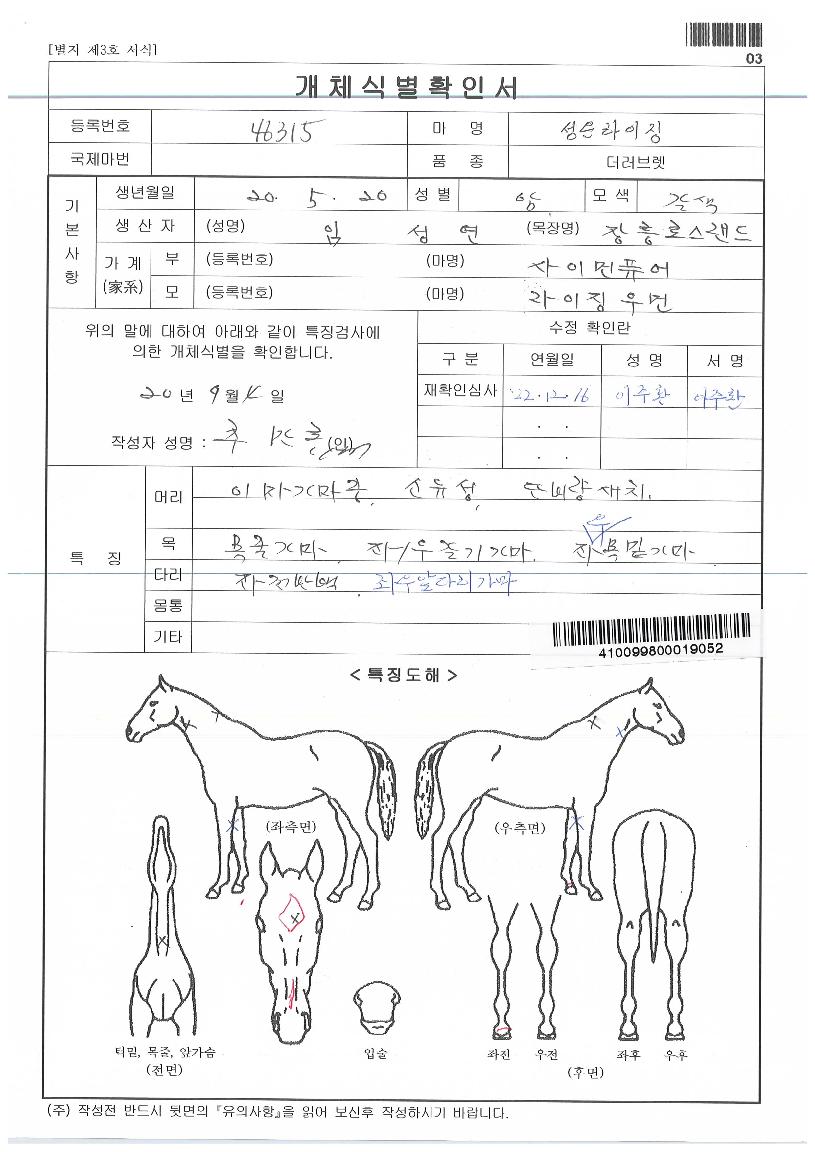 [별지 제3호 서식]
03
개체식별확인서
등록번호 46315 마 명 성운라이징
국제마번 품 종 더러브렛
기본사항
생년월일 20. 5. 20 성 별 암 모 색 갈색
생 산 자 (성명) 임 성 연 (목장명) 장흥로스랜드
가 계 (家系) 부 (등록번호) (마명) 사이먼퓨어
모 (등록번호) (마명) 라이징우먼
위의 말에 대하여 아래와 같이 특징검사에
의한 개체식별을 확인합니다.
20년 9월 4일
작성자 성명 : (인)
수정 확인란
구 분 연월일 성 명 서 명
재확인심사 '22.12.16 이주환 이주환
. .
. .
특 징
머리 이마가마중, 산유성,
목 목줄가마, 좌/우줄기가마, 좌 우 목밑가마
다리 좌우앞다리가마
몸통
기타
410099800019052
< 특징도해 >
(좌측면) (우측면)
턱밑, 목줄, 앞가슴
(전면)
입술
좌전 우전 좌후 우후
(후면)
(주) 작성전 반드시 뒷면의 『유의사항』을 읽어 보신후 작성하시기 바랍니다.